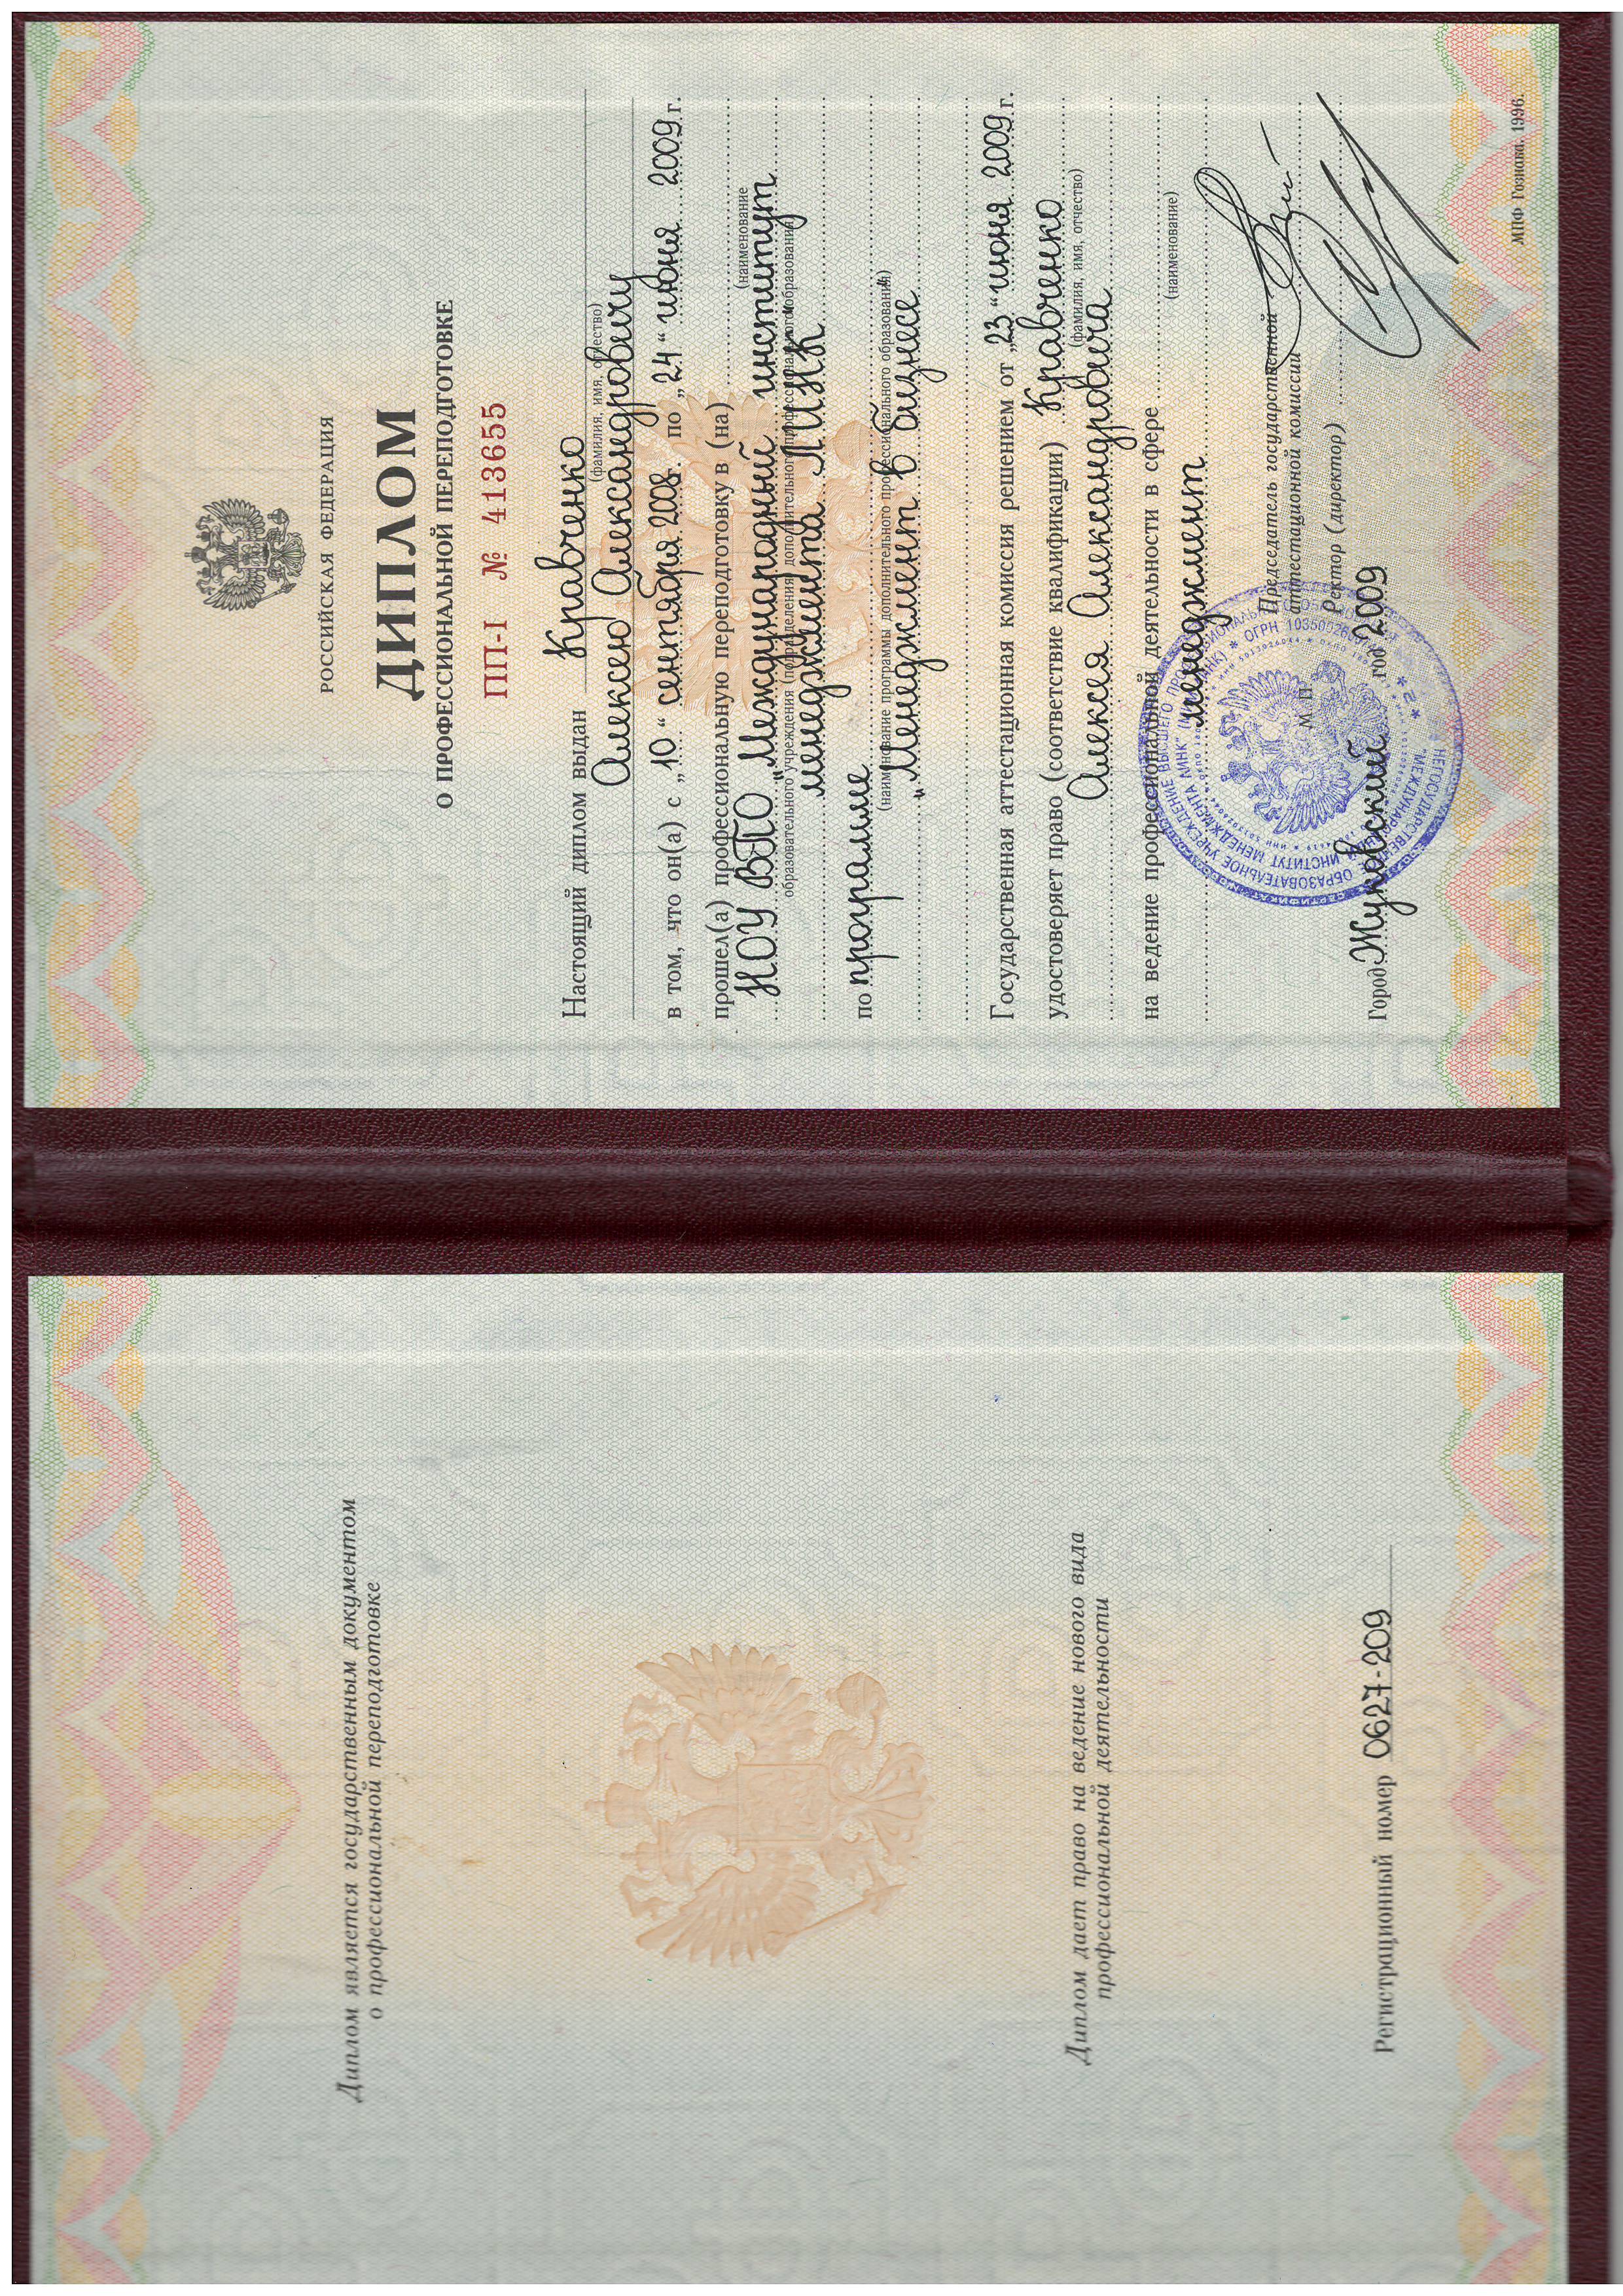 Диплом является государственным документом
о профессиональной переподготовке
Диплом дает право на ведение нового вида
профессиональной деятельности
Регистрационный номер 0627-209
РОССИЙСКАЯ ФЕДЕРАЦИЯ
ДИПЛОМ
О ПРОФЕССИОНАЛЬНОЙ ПЕРЕПОДГОТОВКЕ
ПП-I № 413655
Настоящий диплом выдан Кравченко
(фамилия, имя, отчество)
Алексею Александровичу
в том, что он(а) с „10“ сентября 2008г. по „24“ июня 2009г.
прошел(а) профессиональную переподготовку в (на)
(наименование
НОУ ВПО „Международный институт
образовательного учреждения (подразделения) дополнительного профессионального образования)
менеджмента ЛИНК"
по программе
(наименование программы дополнительного профессионального образования)
„Менеджмент в бизнесе"
Государственная аттестационная комиссия решением от „23“ июня 2009г.
удостоверяет право (соответствие квалификации) Кравченко
(фамилия, имя, отчество)
Алексея Александровича
на ведение профессиональной деятельности в сфере
(наименование)
менеджмент
Председатель государственной
аттестационной комиссии
М. П.
Ректор (директор)
Город Жуковский год 2009
ОБРАЗОВАТЕЛЬНОЕ УЧРЕЖДЕНИЕ ВЫСШЕГО
ИНСТИТУТ МЕНЕДЖМЕНТА ЛИНК"
* 2 *
МПФ Гознака. 1996.